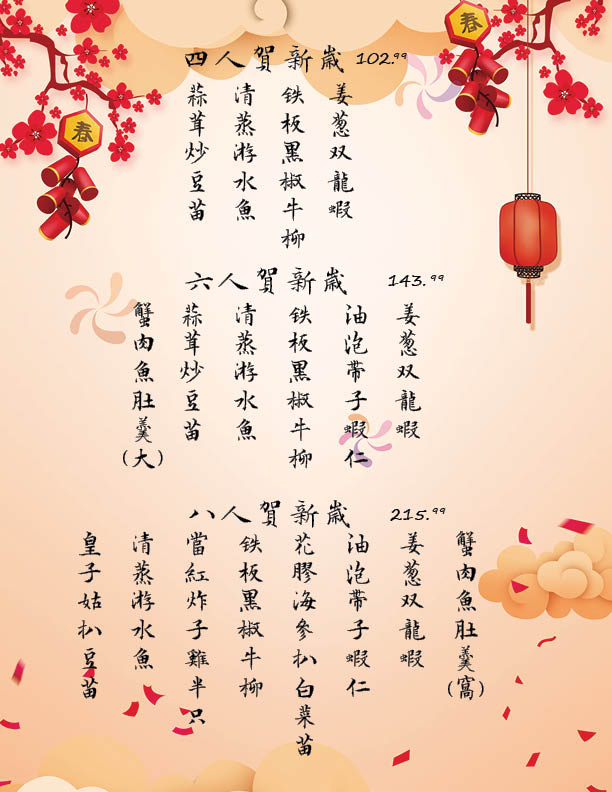 春
春
四人賀新歲 102.99
姜葱双龍蝦
铁板黑椒牛柳
清蒸游水魚
蒜茸炒豆苗
六人賀新歲 143.99
姜葱双龍蝦
油泡帶子蝦仁
铁板黑椒牛柳
清蒸游水魚
蒜茸炒豆苗
蟹肉魚肚羹(大)
八人賀新歲 215.99
蟹肉魚肚羹(窩)
姜葱双龍蝦
油泡帶子蝦仁
花膠海參扒白菜苗
铁板黑椒牛柳
當紅炸子雞半只
清蒸游水魚
皇子姑扒豆苗